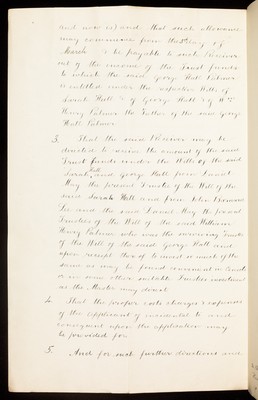 and now is) and that such allowance
may commence from the 3rd day of
March & be payable to such Receiver
out of the income of the Trust funds
to which the said George Hall Palmer
is entitled under the respective Wills of
Sarah Hall & of George Hall & of Wm
Henry Palmer the Father of the said George
Hall Palmer
3. That the said Receiver may be
directed to receive the amount of the said
Trust funds under the Wills of the said
Sarah Hall and George Hall from Daniel
May the present Trustee of the Will of the
said Sarah Hall and from John
Lee and the said Daniel May the present
Trustees of the Will of the said William
Henry Palmer who was the surviving Trustee
of the Will of the said George Hall and
upon receipt thereof to invest so much of the
same as may be found convenient in Consols
or in some other suitable Trustee investment
as the Master may direct
4. That the proper costs charges & expenses
of the applicant of incidental to and
consequent upon the application may
be provided for
5. And for such further directions and